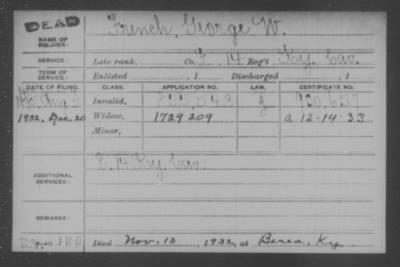 DEAD
NAME OF SOLDIER: French, George W.
SERVICE: Late rank, Co. F, 14 Reg't Ky. Cav.
TERM OF SERVICE: Enlisted , 1 Discharged , 1
DATE OF FILING. CLASS. APPLICATION NO. LAW. CERTIFICATE NO.
Aug Invalid,
1932, Dec. 20 Widow, 1729209 a 12-14-33
Minor,
ADDITIONAL SERVICES: E. 14 Ky. Cav.
REMARKS:
Died Nov. 13, 1932, at Berea, Ky.